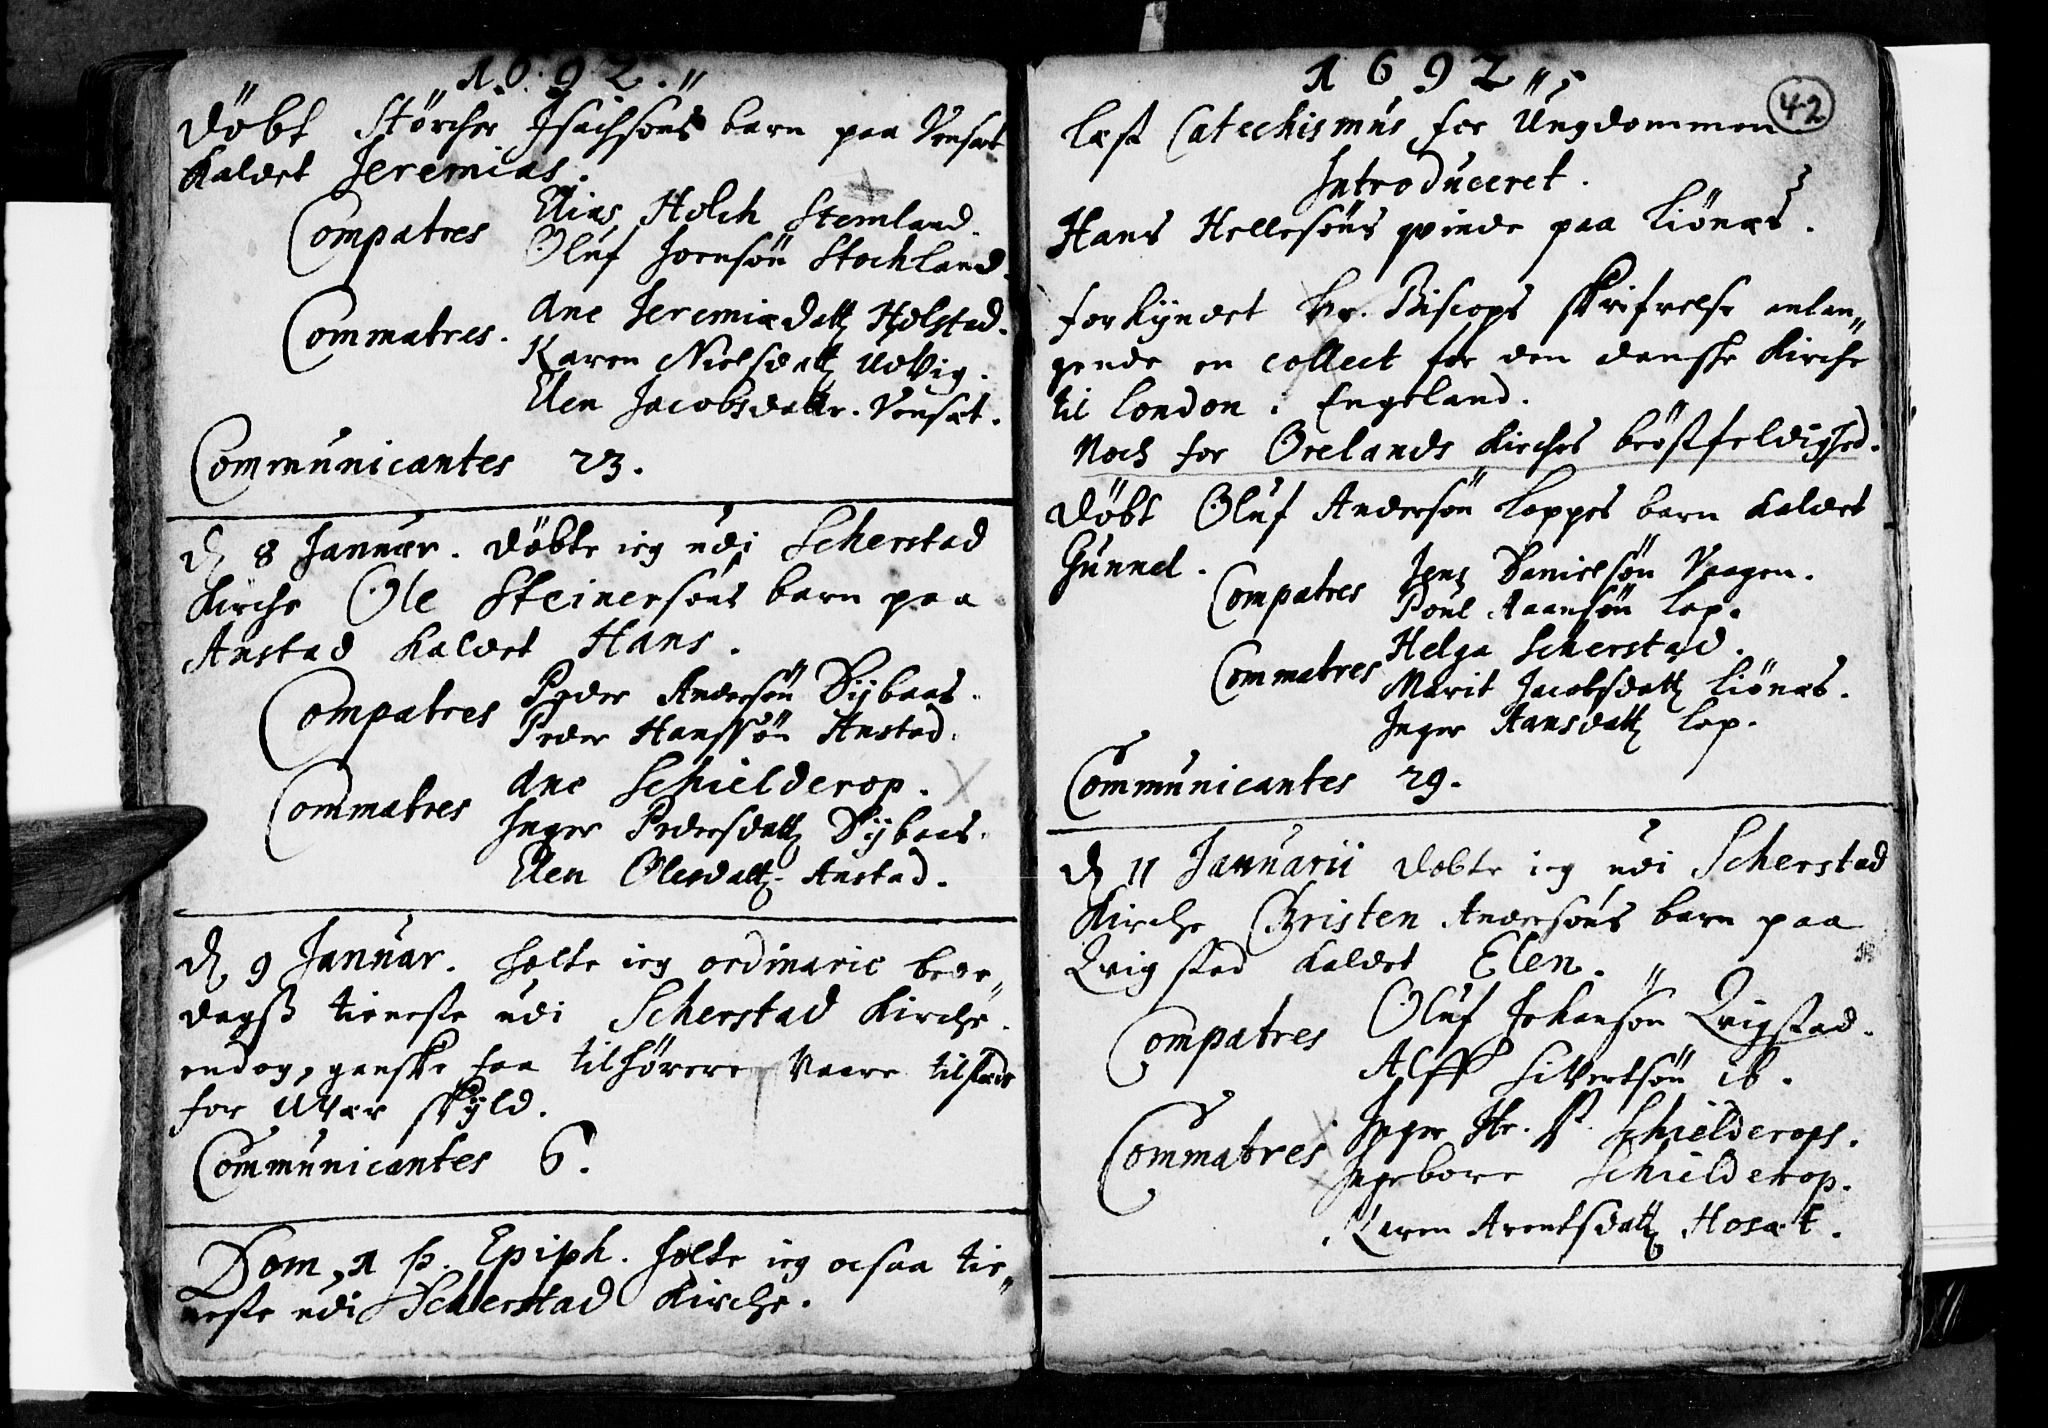 1692.
Döbt Störcher Isachsöns barn paa Vensæt
kaldet Jeremias.
Compatres
Elias Holch Stemland.
Oluf Joensön Stochland.
Commatres.
Ane Jeremiædattr Holstad.
Karen Nielsdattr Udvig.
Elen Jacobsdattr. Vensæt.
Communicantes 23.
D. 8 Januar. döbte ieg udi Scherstad
Kirche Ole Steinersöns barn paa
Anstad kaldet Hans.
Compatres
Peder Andersön Dybaas.
Peder Hanssön Anstad.
Commatres
Ane Schielderop.
Inger Pedersdattr Dybaas.
Elen Olesdattr Anstad.
D. 9 Januar. holte ieg ordinarie bede„
dagß tieneste udi Scherstad Kirche.
endog, ganske faa tilhörere vaare tilstæde
for Uvær skyld.
Communicantes 6.
Dom. 1 p. Epiph. holte ieg ocsaa tie„
neste udi Scherstad Kirche.
1692
42
læst Catechismus for Ungdommen
Introduceret.
Hans Hellesöns qvinde paa Liönæs.
forkyndet hr. Biscops skrifvelse anlan„
gende en collect for den danske Kirche
til London i Engeland.
Noch for Örelands Kirches bröstfeldighed.
Döbt Oluf Andersön Lappes barn kaldet
Gunnel.
Compatres
Jens Danielsön Vaagen.
Poul Aaansön Lap.
Commatres
Helga Scherstad.
Marit Jacobsdattr Liönæs.
Inger Aansdattr Lap.
Communicantes 29.
D. 11 Januarii döbte ieg udi Scherstad
Kirche Christen Andersöns barn paa
Qvigstad kaldet Elen.
Compatres
Oluf Johansön Qvigstad.
Alff Sivertsön ib.
Commatres
Inger Hr. P. Schielderops.
Ingebore Schielderop.
Karen Arentsdattr Hosæt.